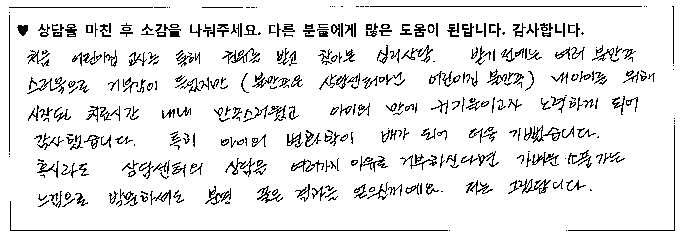 ♥ 상담을 마친 후 소감을 나눠주세요. 다른 분들에게 많은 도움이 된답니다. 감사합니다.
처음 어린이집 교사를 통해 권유를 받고 찾아본 심리상담. 받기 전에는 여러 불만족
스러움으로 거부감이 들었지만 (불만족은 상담센터아닌 어린이집 불만족) 내아이를 위해
시작된 치료시간 내내 만족스러웠고 아이의 말에 귀기울이고자 노력하게 되어
감사했습니다. 특히 아이의 변화함이 배가 되어 더욱 기뻤습니다.
혹시라도 상담센터의 상담을 여러가지 이유로 거부하신다면 가벼운 소풍가는
느낌으로 방문하셔도 분명 좋은 결과를 얻으실거예요. 저는 그랬답니다.